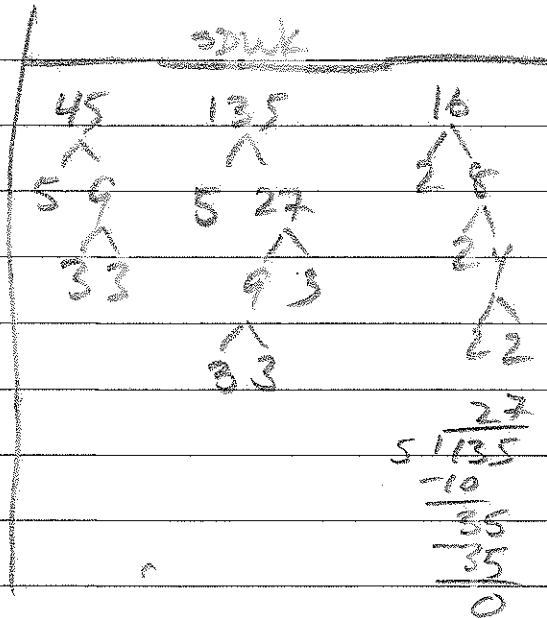 45 135 16
5 9 5 27 2 8
3 3 9 3 2 4
3 3 2 2
27
5 135
-10
35
-35
0